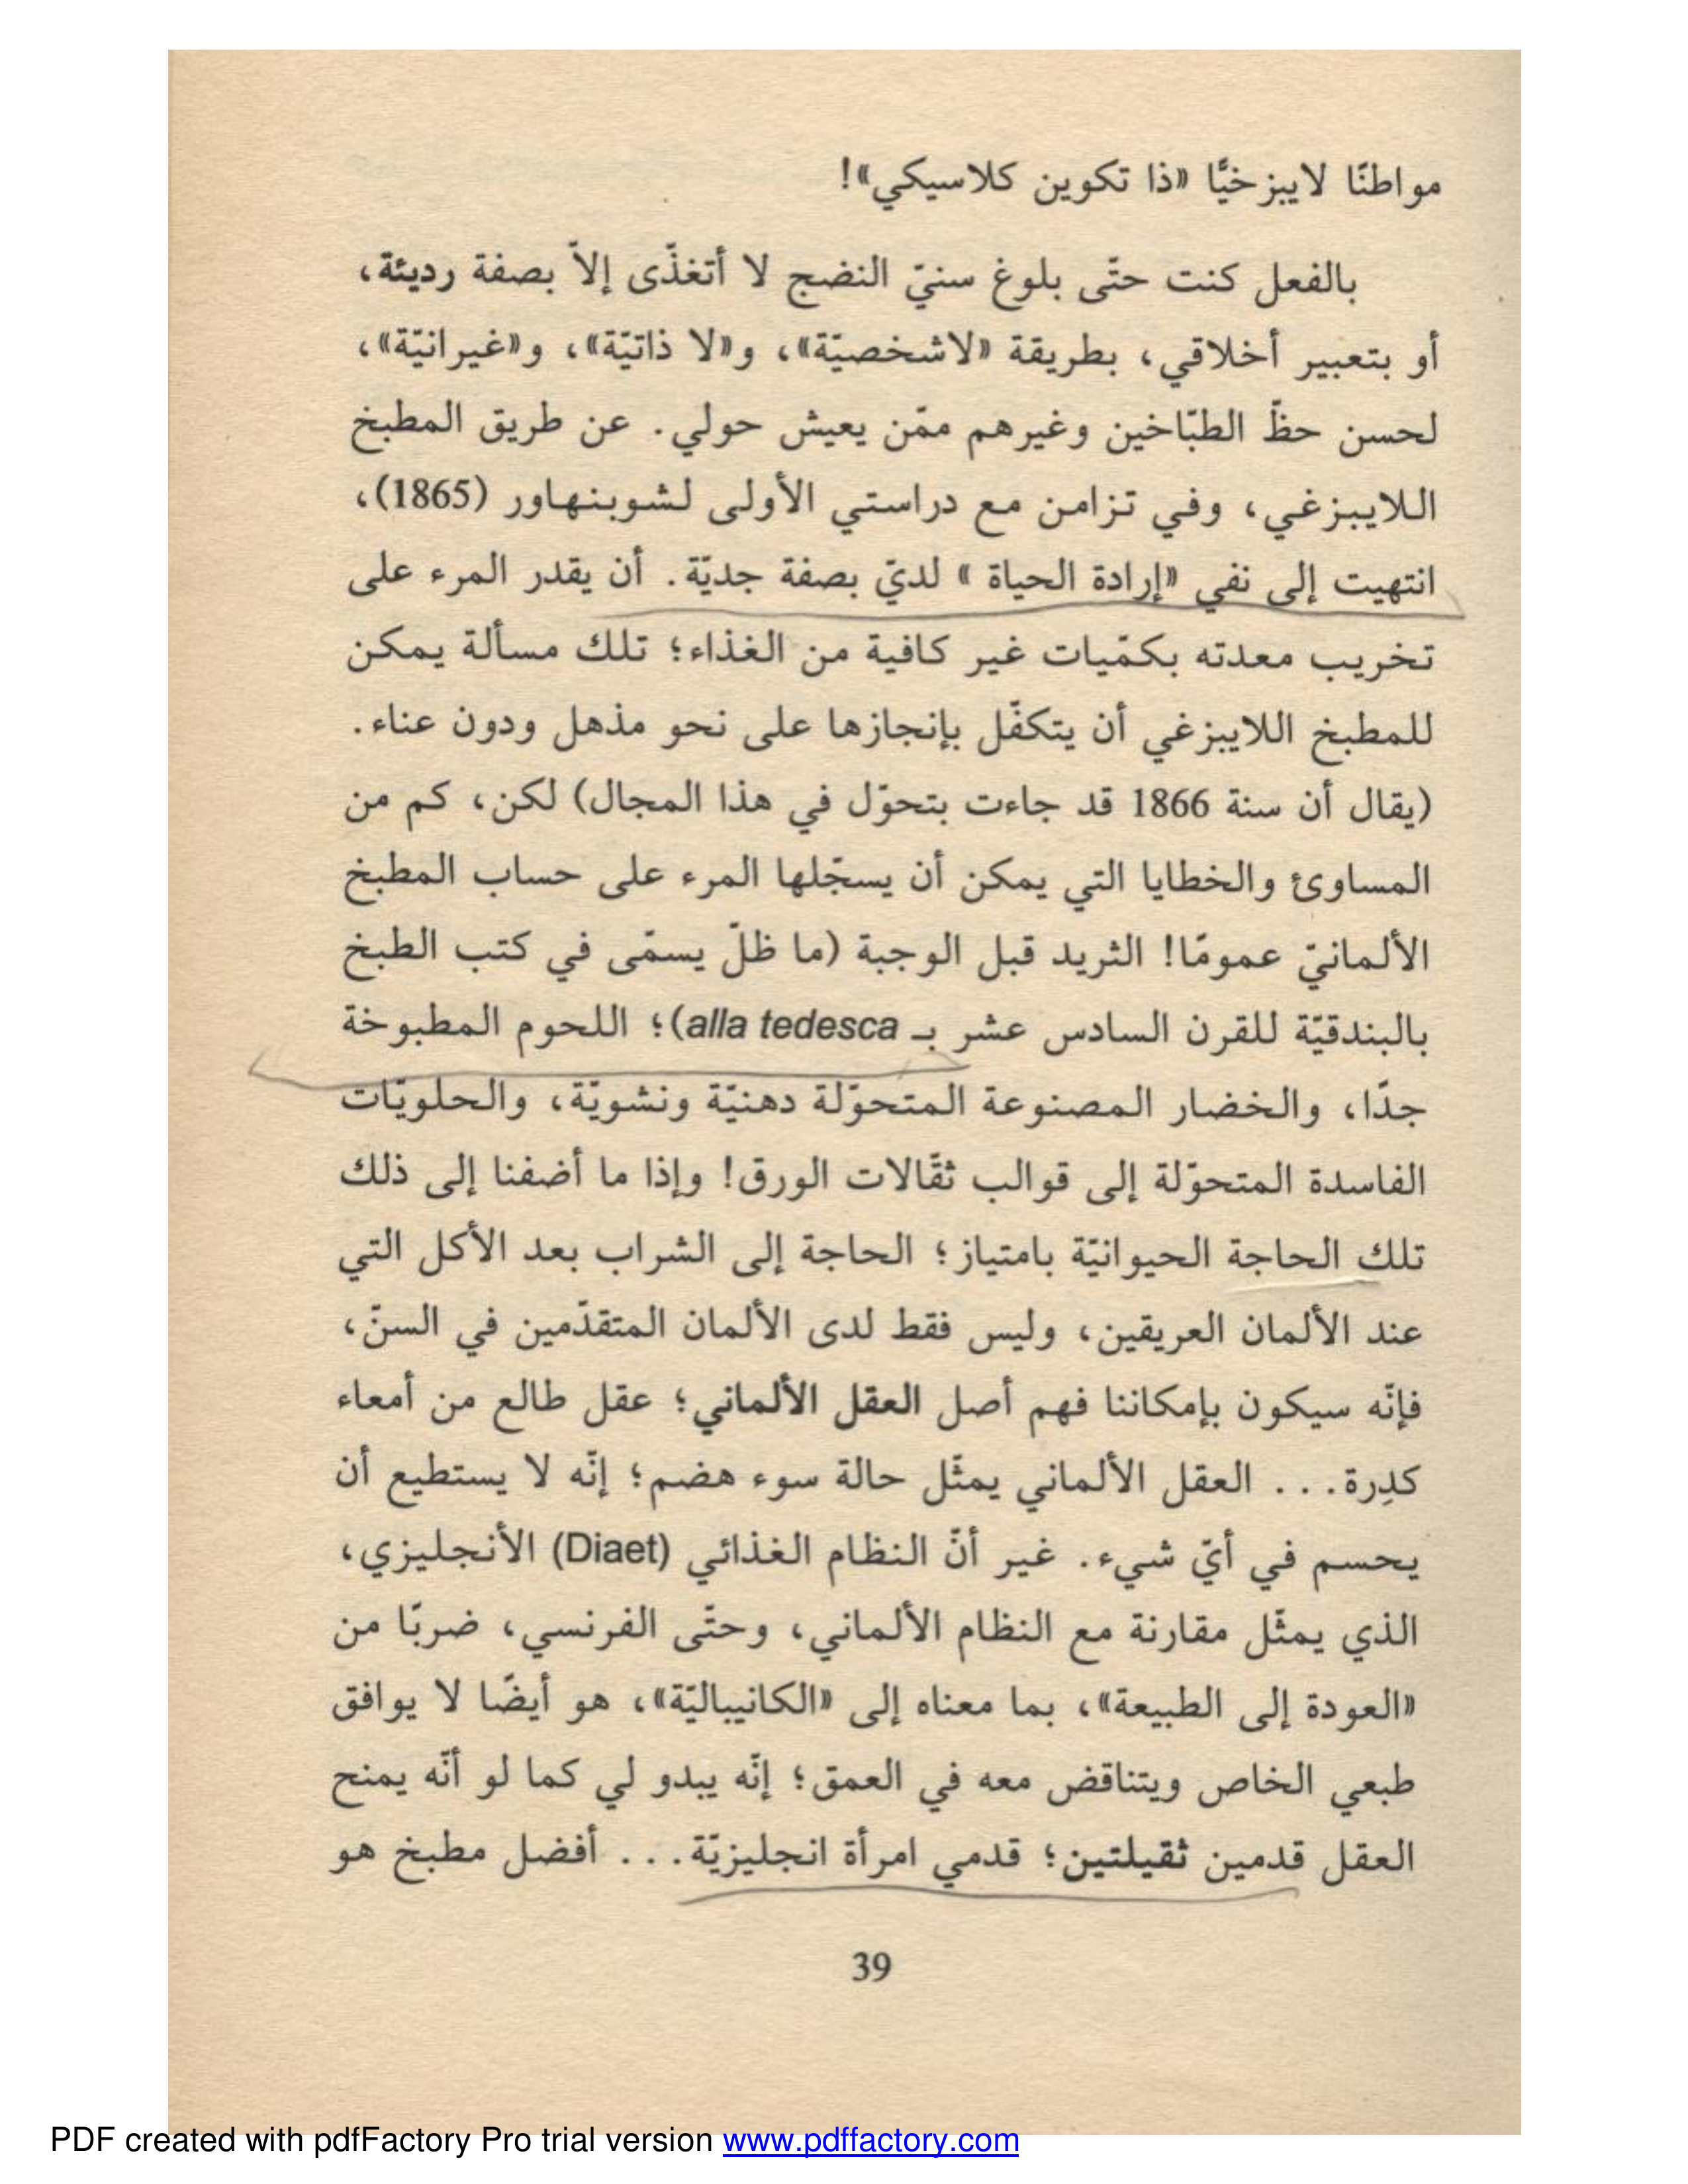 مواطنًا لايبزخيًّا «ذا تكوين كلاسيكي»!
بالفعل كنت حتّى بلوغ سنيّ النضج لا أتغذّى إلاّ بصفة رديئة،
أو بتعبير أخلاقي، بطريقة «لاشخصيّة»، و«لا ذاتيّة»، و«غيرانيّة»،
لحسن حظّ الطبّاخين وغيرهم ممّن يعيش حولي. عن طريق المطبخ
اللايبزغي، وفي تزامن مع دراستي الأولى لشوبنهاور (1865)،
انتهيت إلى نفي «إرادة الحياة » لديّ بصفة جديّة. أن يقدر المرء على
تخريب معدته بكمّيات غير كافية من الغذاء؛ تلك مسألة يمكن
للمطبخ اللايبزغي أن يتكفّل بإنجازها على نحو مذهل ودون عناء.
(يقال أن سنة 1866 قد جاءت بتحوّل في هذا المجال) لكن، كم من
المساوئ والخطايا التي يمكن أن يسجّلها المرء على حساب المطبخ
الألمانيّ عمومًا! الثريد قبل الوجبة (ما ظلّ يسمّى في كتب الطبخ
بالبندقيّة للقرن السادس عشر بـ alla tedesca)؛ اللحوم المطبوخة
جدّا، والخضار المصنوعة المتحوّلة دهنيّة ونشويّة، والحلويّات
الفاسدة المتحوّلة إلى قوالب ثقّالات الورق! وإذا ما أضفنا إلى ذلك
تلك الحاجة الحيوانيّة بامتياز؛ الحاجة إلى الشراب بعد الأكل التي
عند الألمان العريقين، وليس فقط لدى الألمان المتقدّمين في السنّ،
فإنّه سيكون بإمكاننا فهم أصل العقل الألماني؛ عقل طالع من أمعاء
كدِرة... العقل الألماني يمثّل حالة سوء هضم؛ إنّه لا يستطيع أن
يحسم في أيّ شيء. غير أنّ النظام الغذائي (Diaet) الأنجليزي،
الذي يمثّل مقارنة مع النظام الألماني، وحتّى الفرنسي، ضربًا من
«العودة إلى الطبيعة»، بما معناه إلى «الكانيباليّة»، هو أيضًا لا يوافق
طبعي الخاص ويتناقض معه في العمق؛ إنّه يبدو لي كما لو أنّه يمنح
العقل قدمين ثقيلتين؛ قدمي امرأة انجليزيّة... أفضل مطبخ هو
39
PDF created with pdfFactory Pro trial version www.pdffactory.com